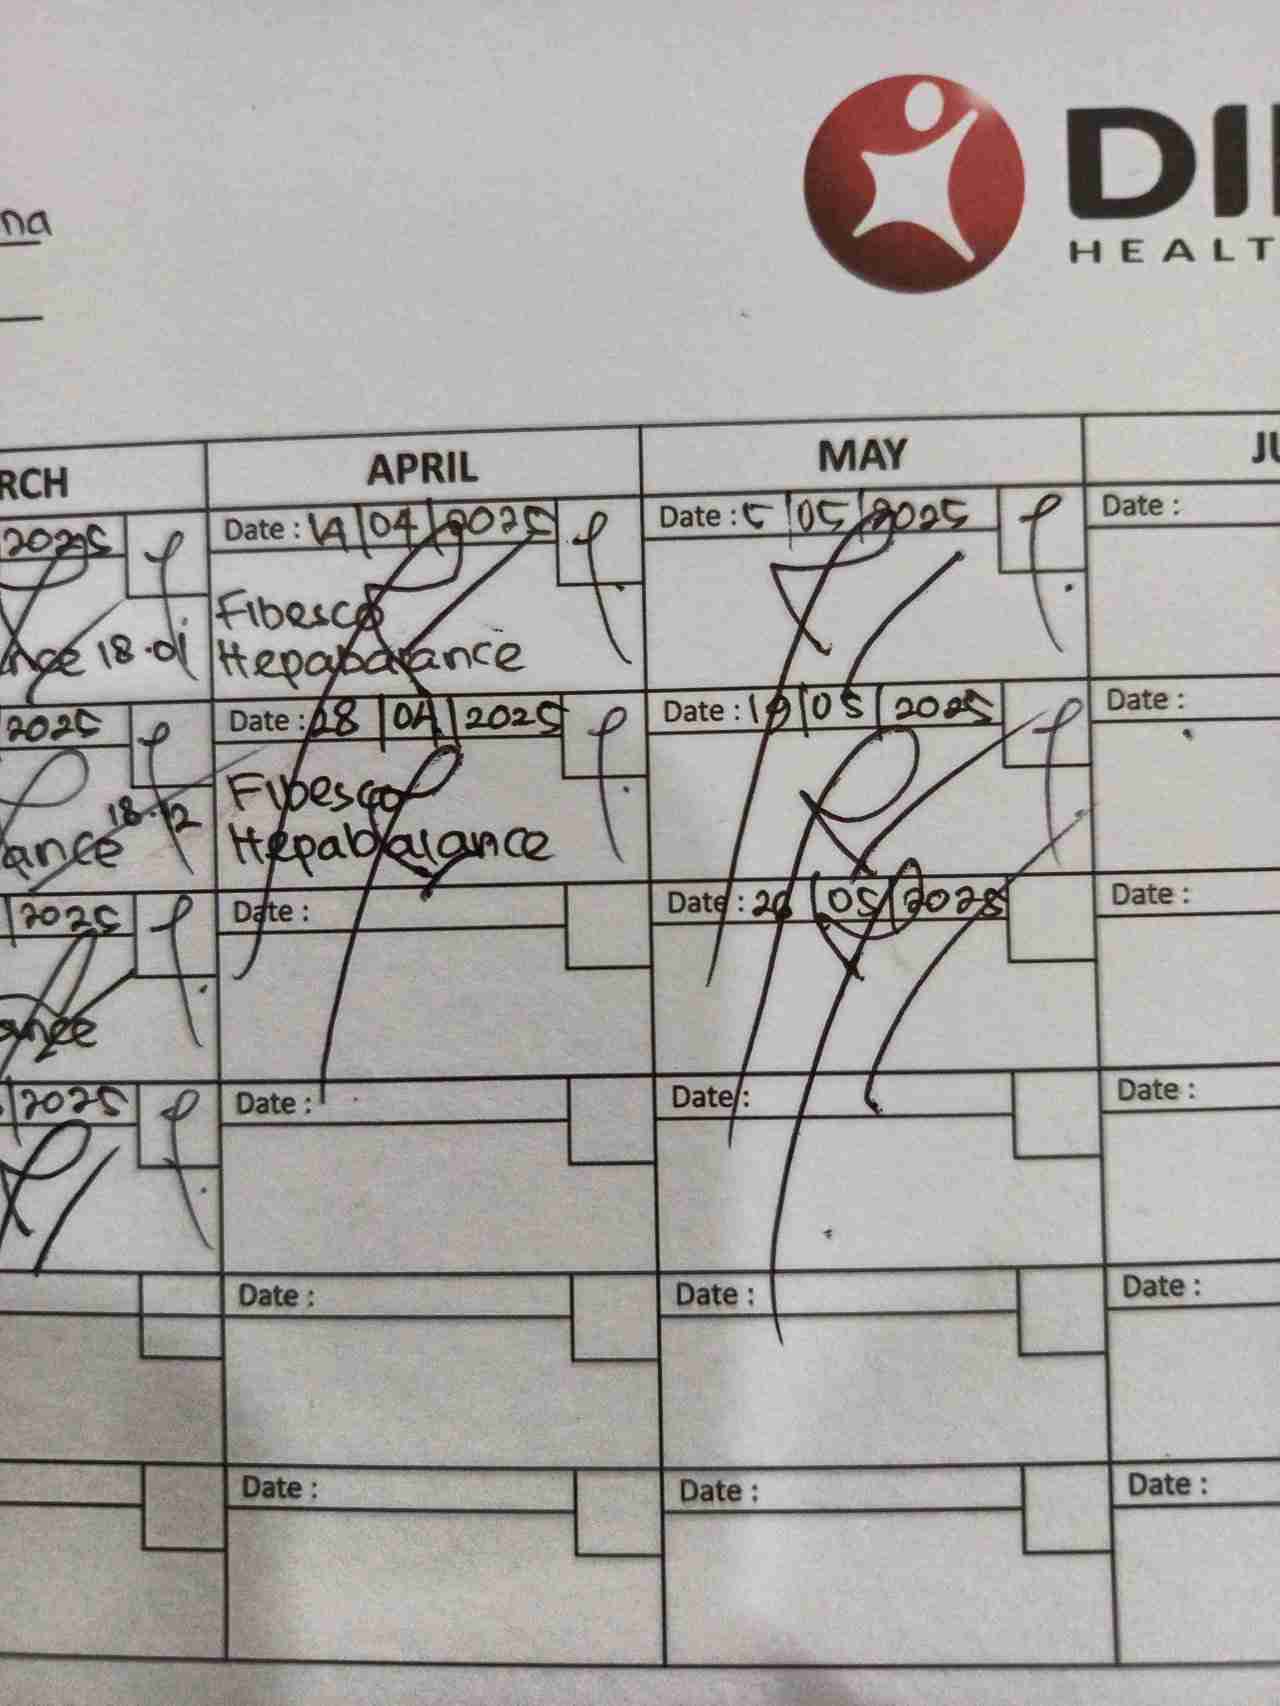 na
DI
HEALT
RCH
APRIL
MAY
JU
2025
Date : 14/04/2025
Date : 5/05/2025
Date :
Fibesco
nce 18.01
Hepabalance
2025
Date : 28/04/2025
Date : 19/05/2025
Date :
Fibesco
ance 18.12
Hepabalance
/2025
Date :
Date : 26/05/2025
Date :
ance
/2025
Date :
Date :
Date :
Date :
Date :
Date :
Date :
Date :
Date :